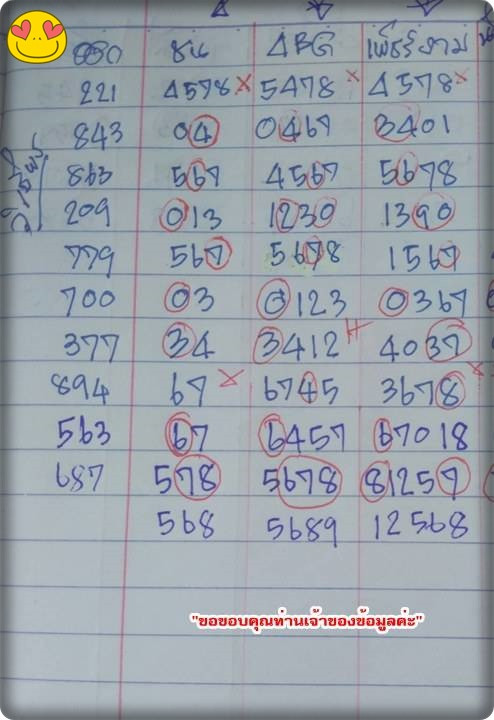 ชน ABG เพชรงาม
221 4578 x 5478 x 4578 x
843 04 0467 3401
863 567 4567 5678
209 013 1230 1390
779 567 5678 1567
700 03 0123 0367
377 34 3412 H 4037
894 67 x 6745 3678 x
563 67 6457 67018
687 578 5678 81257
568 5689 12568
"ขอขอบคุณท่านเจ้าของข้อมูลค่ะ"